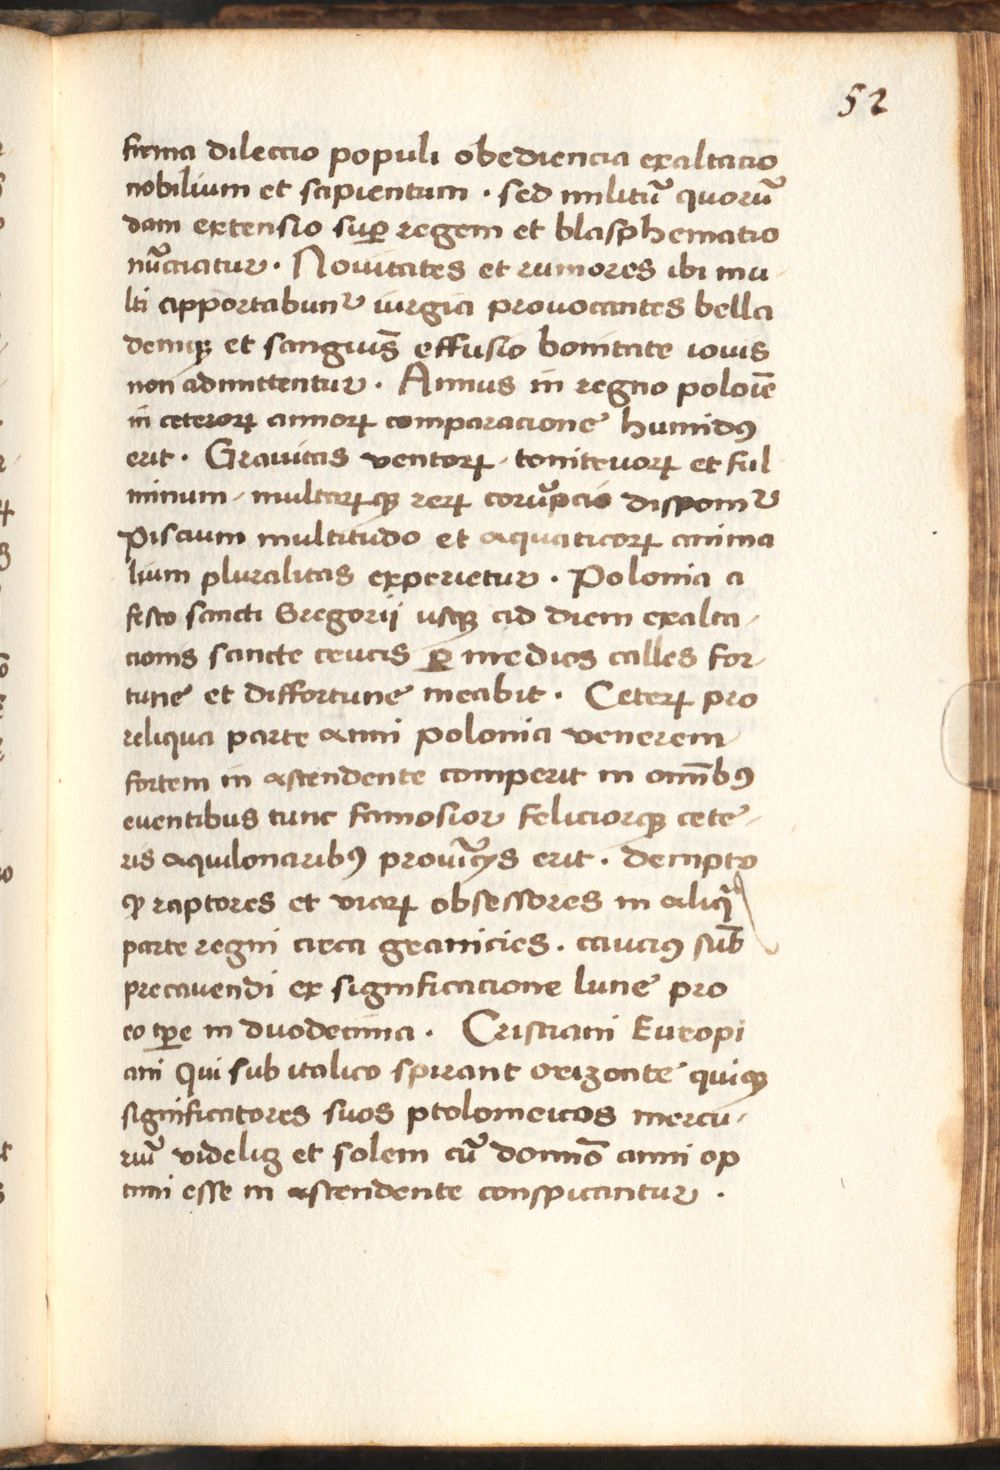 52
firma dileccio populi obediencia exaltacio
nobilium et sapientum . sed militū quorū
dam extensio suꝑ regem et blasphematio
nūcciatur . Novitates et rumores ibi mu
lti apportabunt᷑ iurgia provocantes bella
demꝗ et sanguīs effusio bonitate iovis
non admittentur . Annus in regno polonīe
in ceteroꝝ annoꝝ comparacione humidꝰ
erit . Gravitas ventoꝝ . tonitruoꝝ et ful
minum . multaꝝꝗ reꝝ corūpcio disponit᷑
Piscium multitudo et aquaticoꝝ anima
lium pluralitas experietur . Polonia a
festo sancti Gregorij usꝗ ad diem exalta-
cionis sancte crucis ꝑ medios calles for-
tune et diffortune meabit . Ceteꝝ pro
reliqua parte anni Polonia venerem
fortem in ascendente comperit in omībꝰ
eventibus tunc famosior feliciorꝗ cete-
ris aquilonaribꝰ provīcijs erit . dempto
ꝙ raptores et viaꝝ obsessores in aliqͣ
parte regni circa granicies . cauciꝰ sūt
precavendi ex significacione lune pro
eo tꝑe in duodecima . Cristiani Europi
ani Qui sub italico spirant orizonte quiꝗ
significatores suos ptolomeicos mercu-
riū videlicꝫ et solem cū domīo anni op
timi esse in ascendente conspicantur .